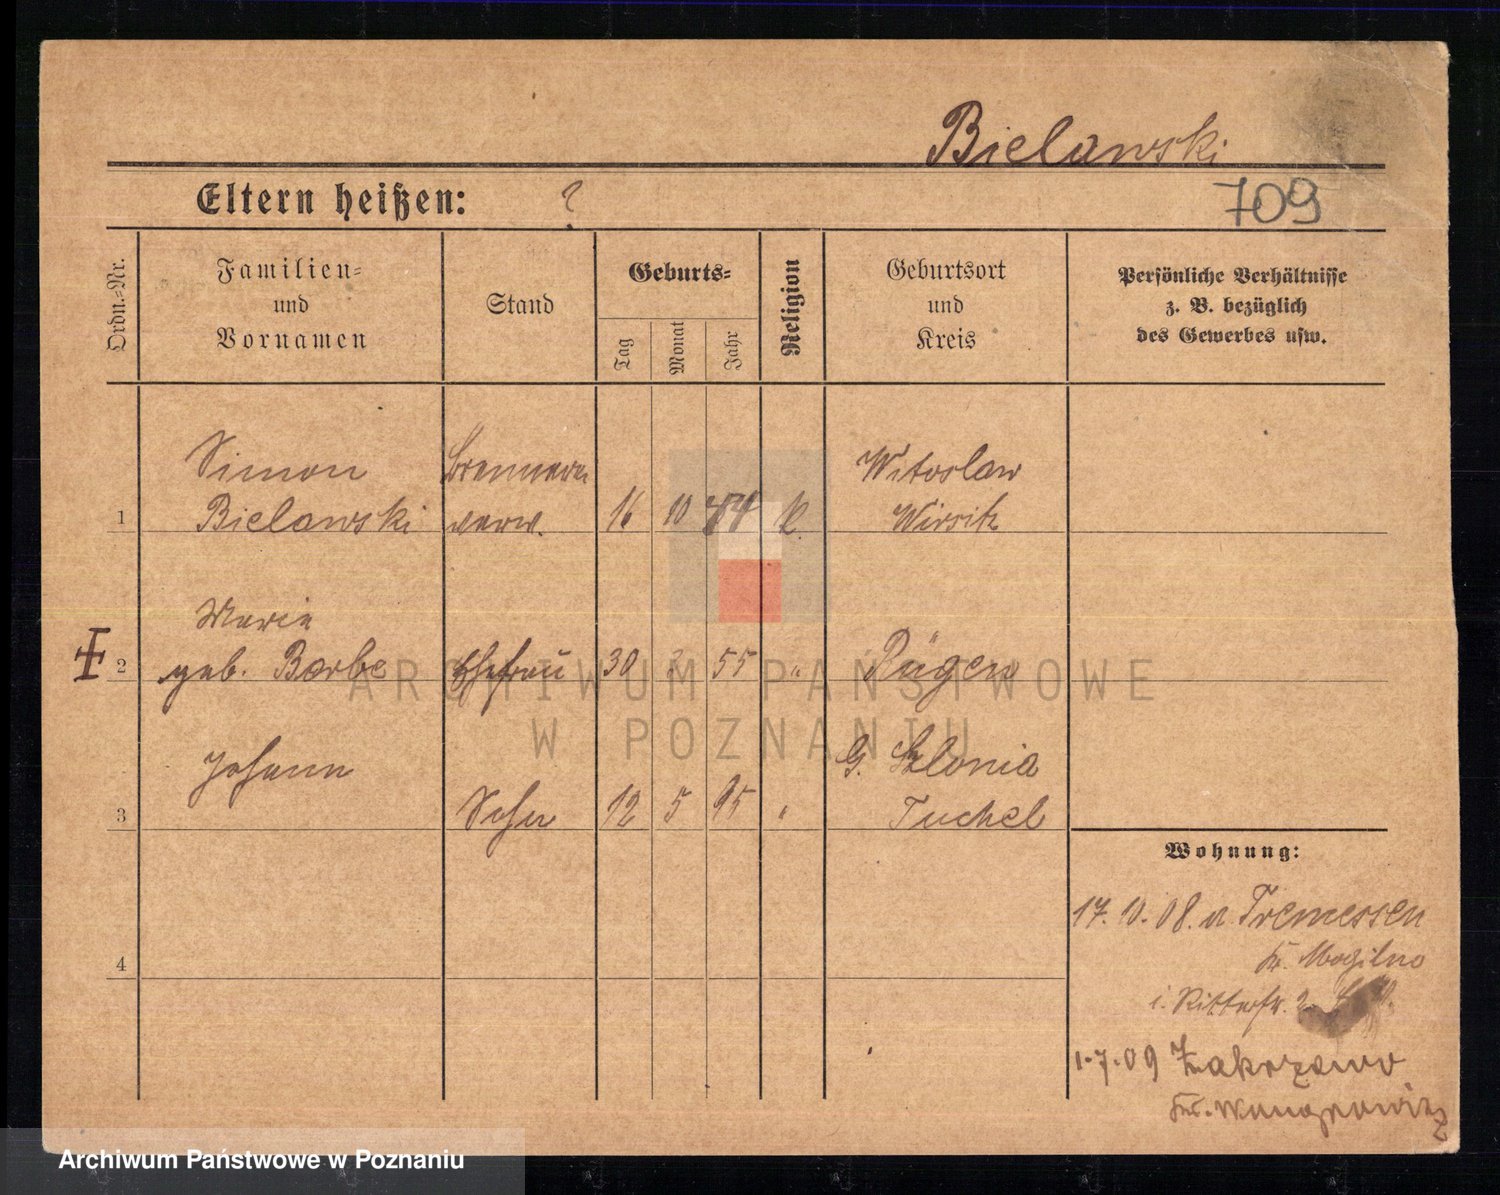 Bielawski
Eltern heißen: ?
709
Ordn.-Nr.
Familien-
und
Vornamen
Stand
Geburts-
Tag
Monat
Jahr
Religion
Geburtsort
und
Kreis
Persönliche Verhältnisse
z. B. bezüglich
des Gewerbes usw.
1
Simon
Bielawski
Brennerei
verw.
16 10 44 k.
Witoslaw
Wirsitz
2
Maria
geb. Barbe
Ehefrau
30 55 "
Rügen
3
Johann
Sohn
12 5 95 "
G. Slonia
Tuchel
4
Wohnung:
17. 10. 08. a. Tremessen
Kr. Mogilno
i. Ritterstr. 2
1.7.09 Zakrzewo
Kr. Wongrowitz
ARCHIWUM PAŃSTWOWE
W POZNANIU
Archiwum Państwowe w Poznaniu